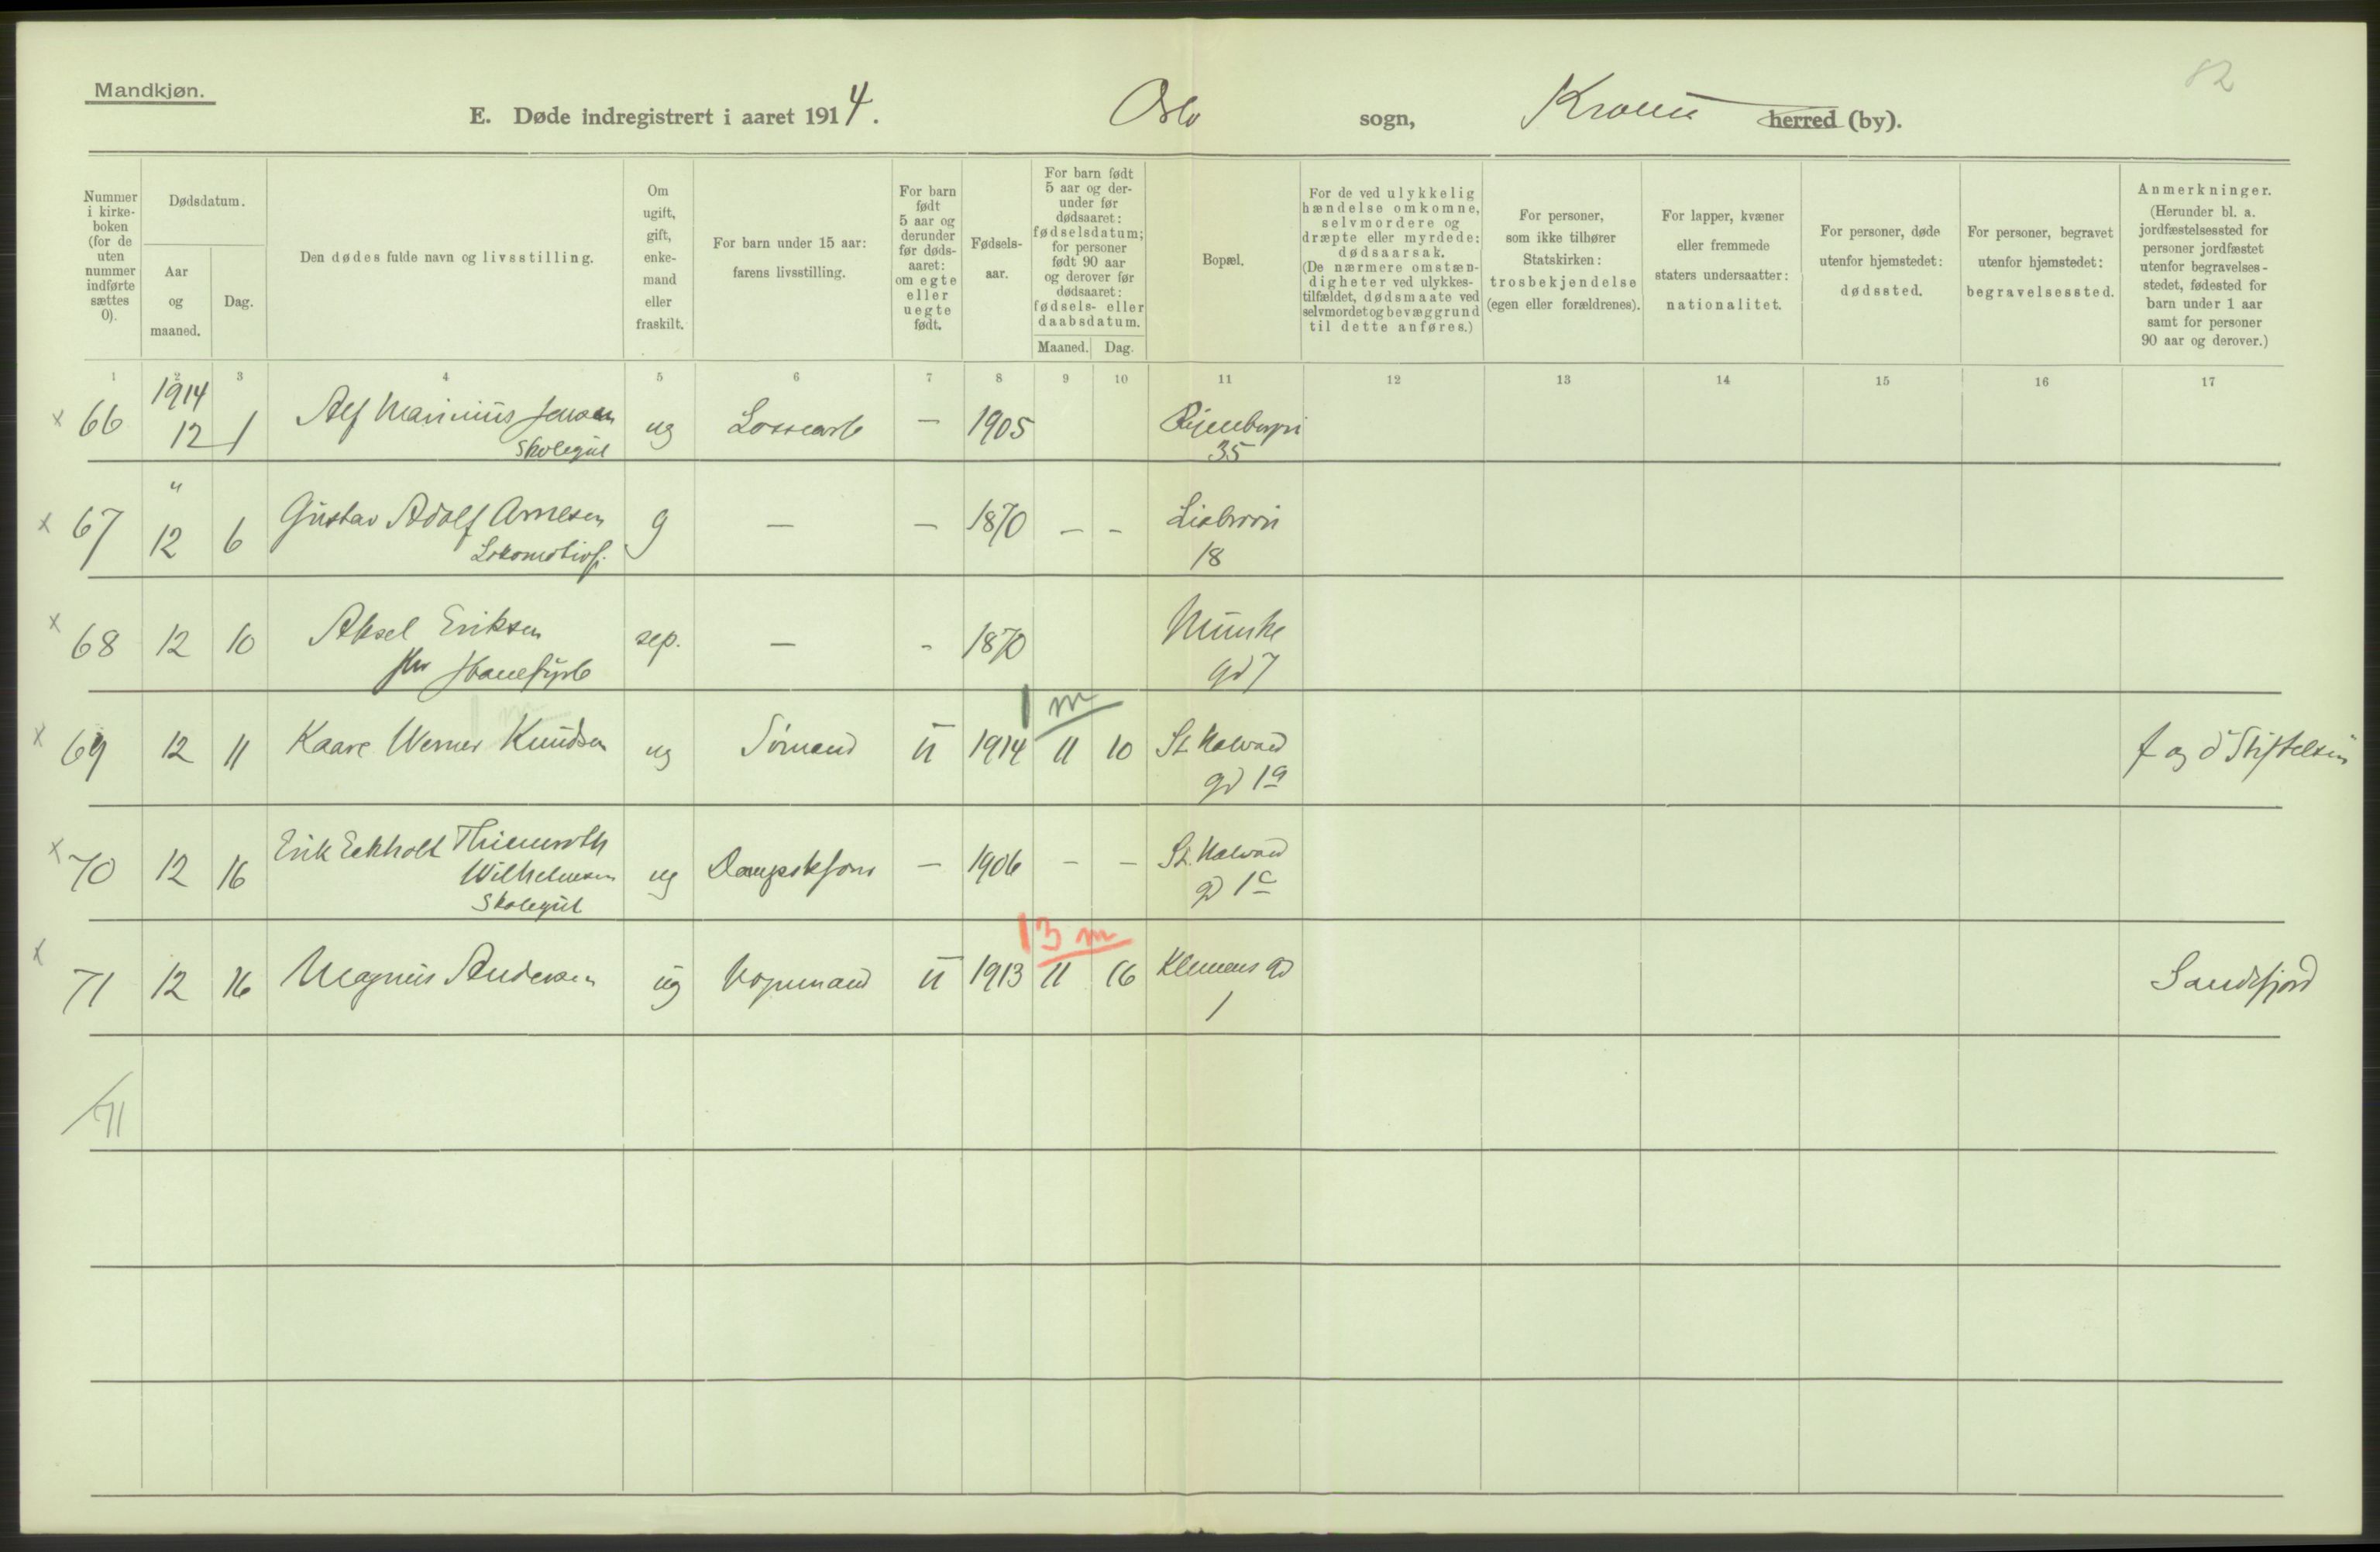 82
Mandkjøn.
E. Døde indregistrert i aaret 1914. Oslo sogn, herred (by).
Nummer
i kirke-
boken
(for de
uten
nummer
indførte
sættes
0).
Dødsdatum.
Aar
og
maaned.
Dag.
Den dødes fulde navn og livsstilling.
Om
ugift,
gift,
enke-
mand
eller
fraskilt.
For barn under 15 aar:
farens livsstilling.
For barn
født
5 aar og
derunder
før døds-
aaret:
om egte
eller
uegte
født.
Fødsels-
aar.
For barn født
5 aar og der-
under før
dødsaaret:
fødselsdatum;
for personer
født 90 aar
og derover før
dødsaaret:
fødsels- eller
daabsdatum.
Maaned. Dag.
Bopæl.
For de ved ulykkelig
hændelse omkomne,
selvmordere og
dræpte eller myrdede:
dødsaarsak.
(De nærmere omstæn-
digheter ved ulykkes-
tilfældet, dødsmaate ved
selvmordet og bevæggrund
til dette anføres.)
For personer,
som ikke tilhører
Statskirken:
trosbekjendelse
(egen eller forældrenes).
For lapper, kvæner
eller fremmede
staters undersaatter:
nationalitet.
For personer, døde
utenfor hjemstedet:
dødssted.
For personer, begravet
utenfor hjemstedet:
begravelsessted.
Anmerkninger.
(Herunder bl. a.
jordfæstelsessted for
personer jordfæstet
utenfor begravelses-
stedet, fødested for
barn under 1 aar
samt for personer
90 aar og derover.)
1 2 3 4 5 6 7 8 9 10 11 12 13 14 15 16 17
1914
x 66 12 1 Alf Marinius Jensen ug Lossearb — 1905
Skolegut 35
"
x 67 12 6 Gustav Adolf Arnesen g — — 1870 — — Liabrovn
Lokomotivf. 18
x 68 12 10 Aksel Eriksen sep. — - 1870 Munke
gd 7
1 m
x 69 12 11 Kaare Werner Knudsen ug Sømand u 1914 11 10 St. Halvard f og d "Stiftelsen"
gd 1a
x 70 12 16 Erik Eckholt Thiemroth ug — 1906 — — St. Halvard
Wilhelmsen gd 1c
Skolegut
13 m
x 71 12 16 Magnus Andersen ug Vognmand u 1913 11 16 Klemens gd Sandefjord
1
/71